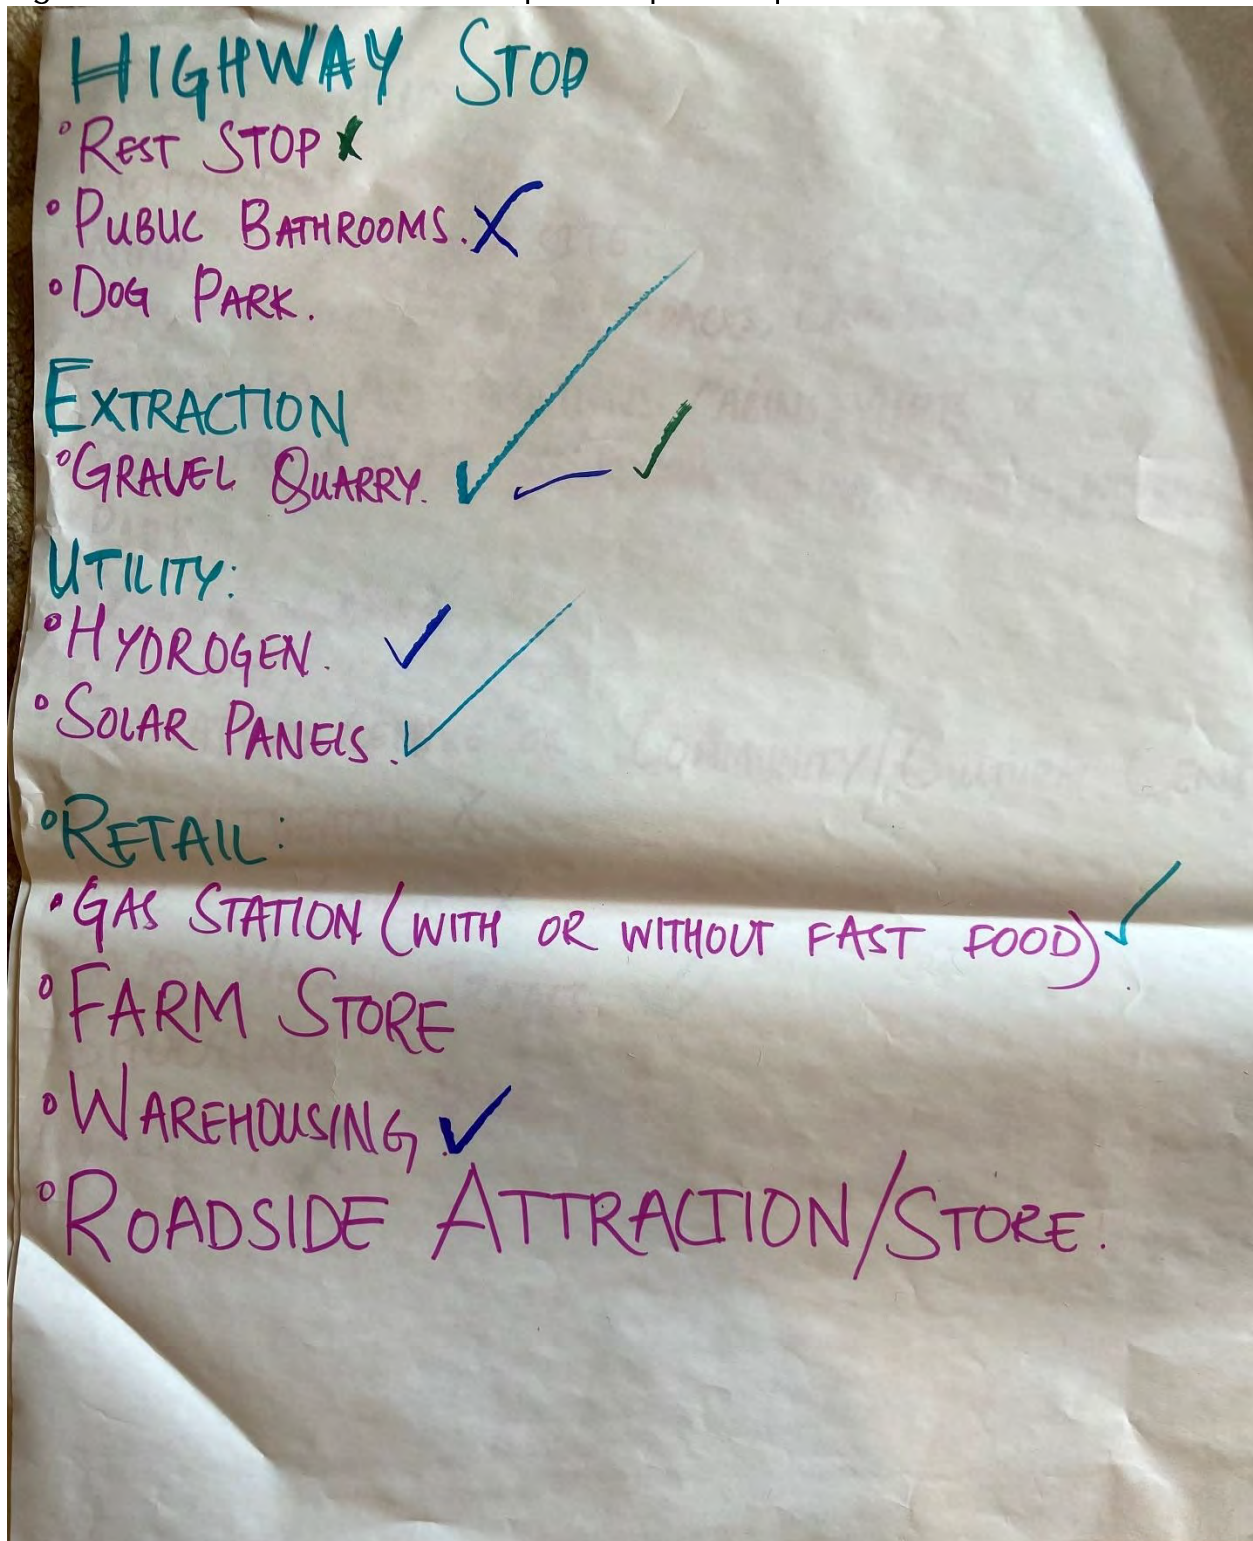 HIGHWAY STOP
°REST STOP X
°PUBLIC BATHROOMS. X
°DOG PARK.
EXTRACTION
°GRAVEL QUARRY. ✓ ✓ ✓
UTILITY:
°HYDROGEN. ✓
°SOLAR PANELS. ✓
°RETAIL:
•GAS STATION (WITH OR WITHOUT FAST FOOD). ✓
°FARM STORE
°WAREHOUSING. ✓
°ROADSIDE ATTRACTION/STORE.